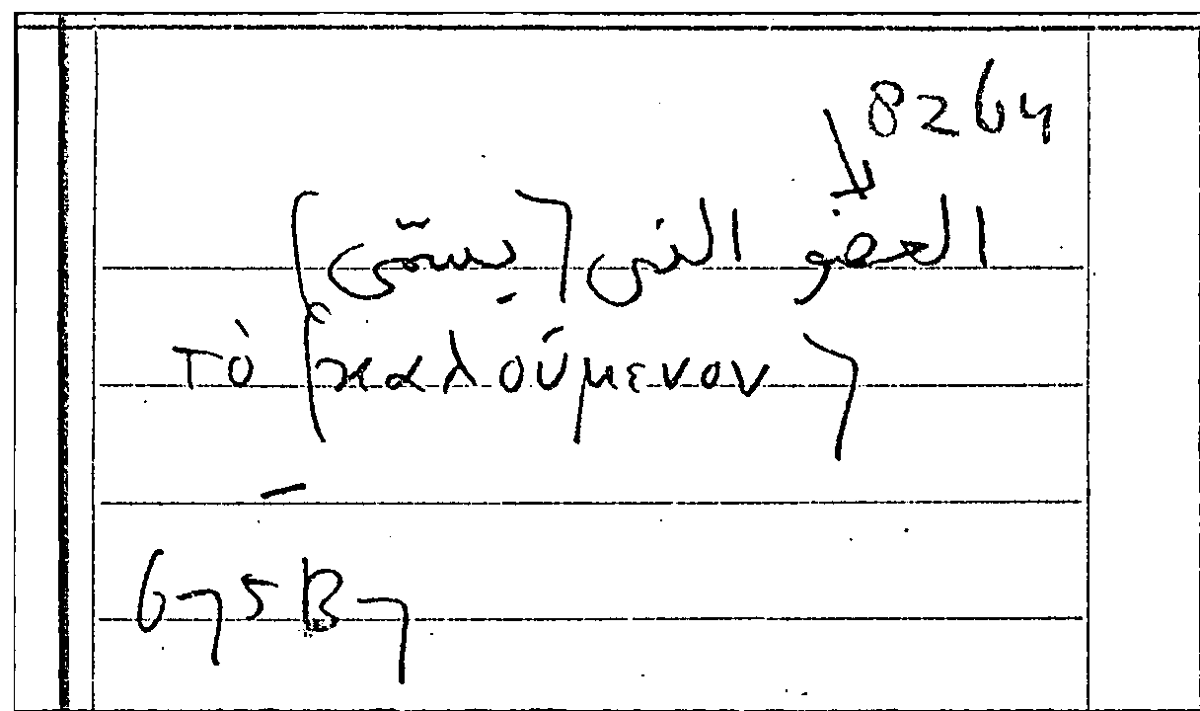 8264
العضو الذى [يسمّى]
τὸ [καλούμενον]
675B7